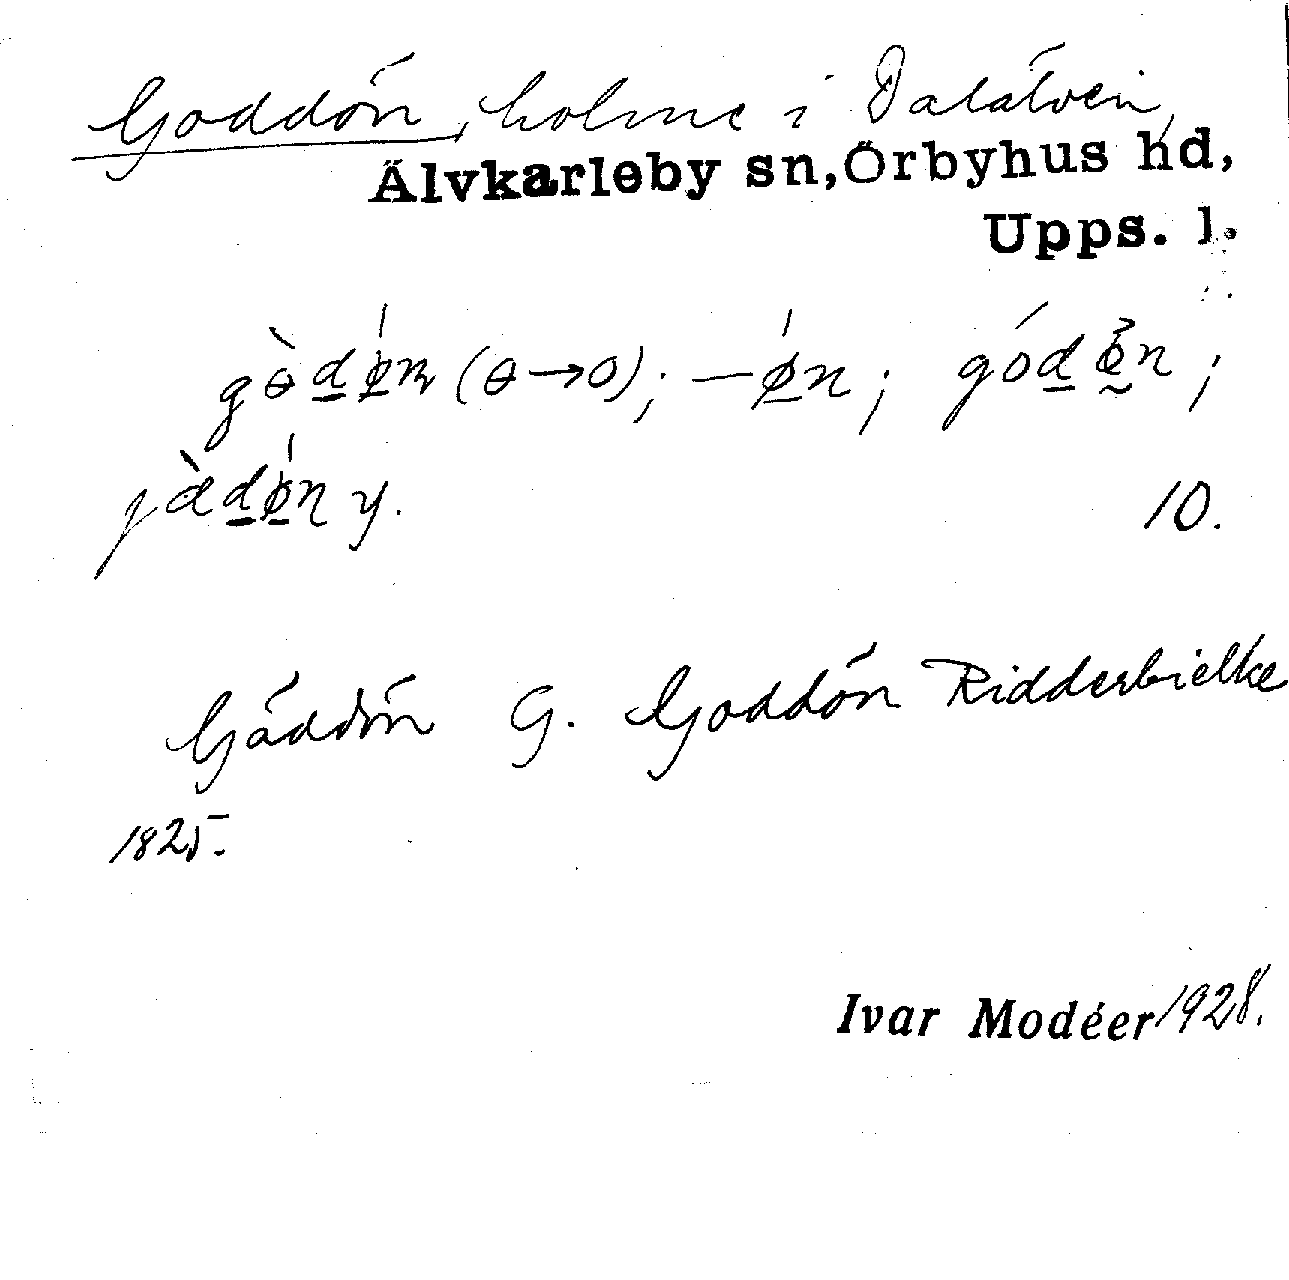 Goddön, holme i Dalälven,
Älvkarleby sn, Örbyhus hd,
Upps. l.
gɵ̀dø̍n (ɵ→o); —ø̍n; gódøn;
jæ̀dø̍n y. 10.
Gäddön G. Goddön Ridderbielke
1825.
Ivar Modéer 1928.